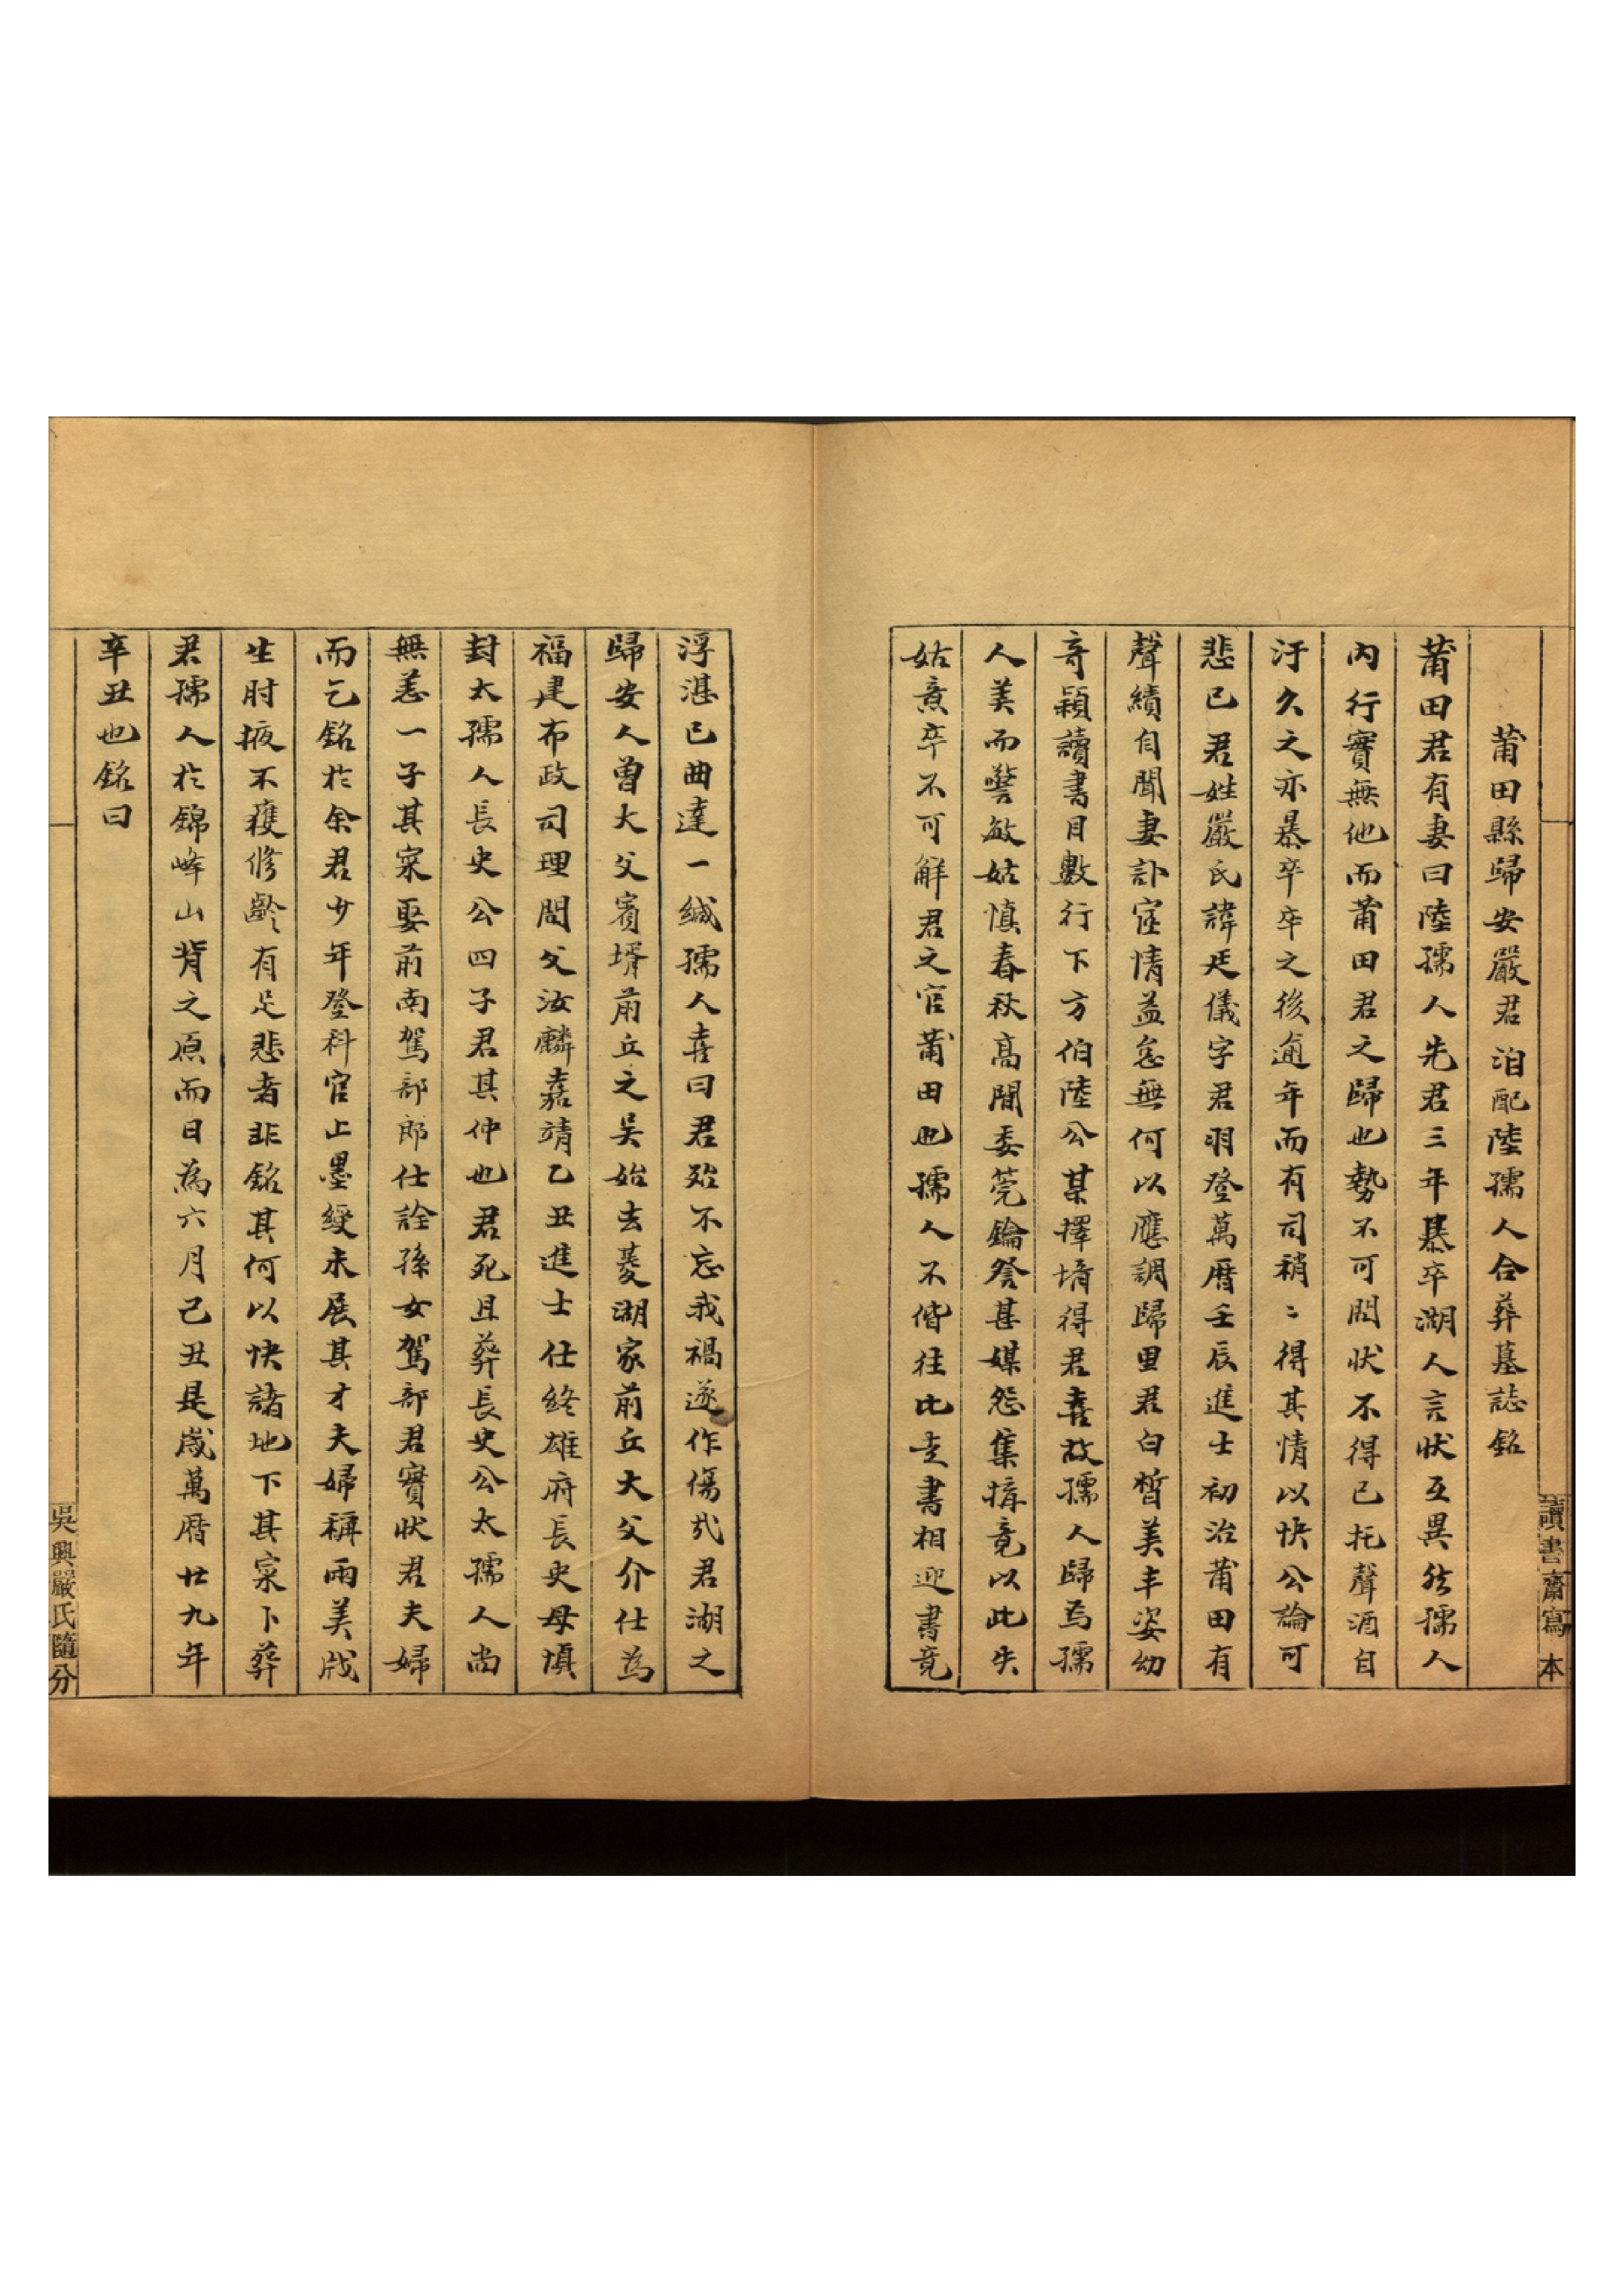 莆田縣歸安嚴君洎配陸孺人合葬墓誌銘
莆田君有妻曰陸孺人先君三年暴卒湖人言狀互異然孺人
內行實無他而莆田君之歸也勢不可問狀不得已托聲酒自
汙久之亦暴卒卒之後逾年而有司稍〻得其情以快公論可
悲已君姓嚴氏諱廷儀字君羽登萬曆壬辰進士初治莆田有
聲績自聞妻訃宦情益怠無何以應調歸里君白皙美丰姿幼
奇穎讀書目數行下方伯陸公某擇壻得君喜故孺人歸焉孺
人美而警敏姑慎春秋高閒委莞鑰詧甚媒怨集搆竟以此失
姑意卒不可解君之官莆田也孺人不偕往比走書相迎書竟
浮湛已曲達一緘孺人喜曰君殆不忘我禍遂作傷哉君湖之
歸安人曾大父賓壻前丘之吳始去菱湖家前丘大父介仕為
福建布政司理問父汝麟嘉靖乙丑進士仕終雄府長史母慎
封太孺人長史公四子君其仲也君死且葬長史公太孺人尚
無恙一子其寀娶前南駕部郎仕詮孫女駕部君實狀君夫婦
而乞銘於余君少年登科官上墨綬未展其才夫婦稱兩美戕
生肘掖不獲修齡有足悲者非銘其何以快諸地下其寀卜葬
君孺人於錦峰山背之原而日為六月己丑是歲萬曆廿九年
辛丑也銘曰
讀書齋寫本
吳興嚴氏隨分